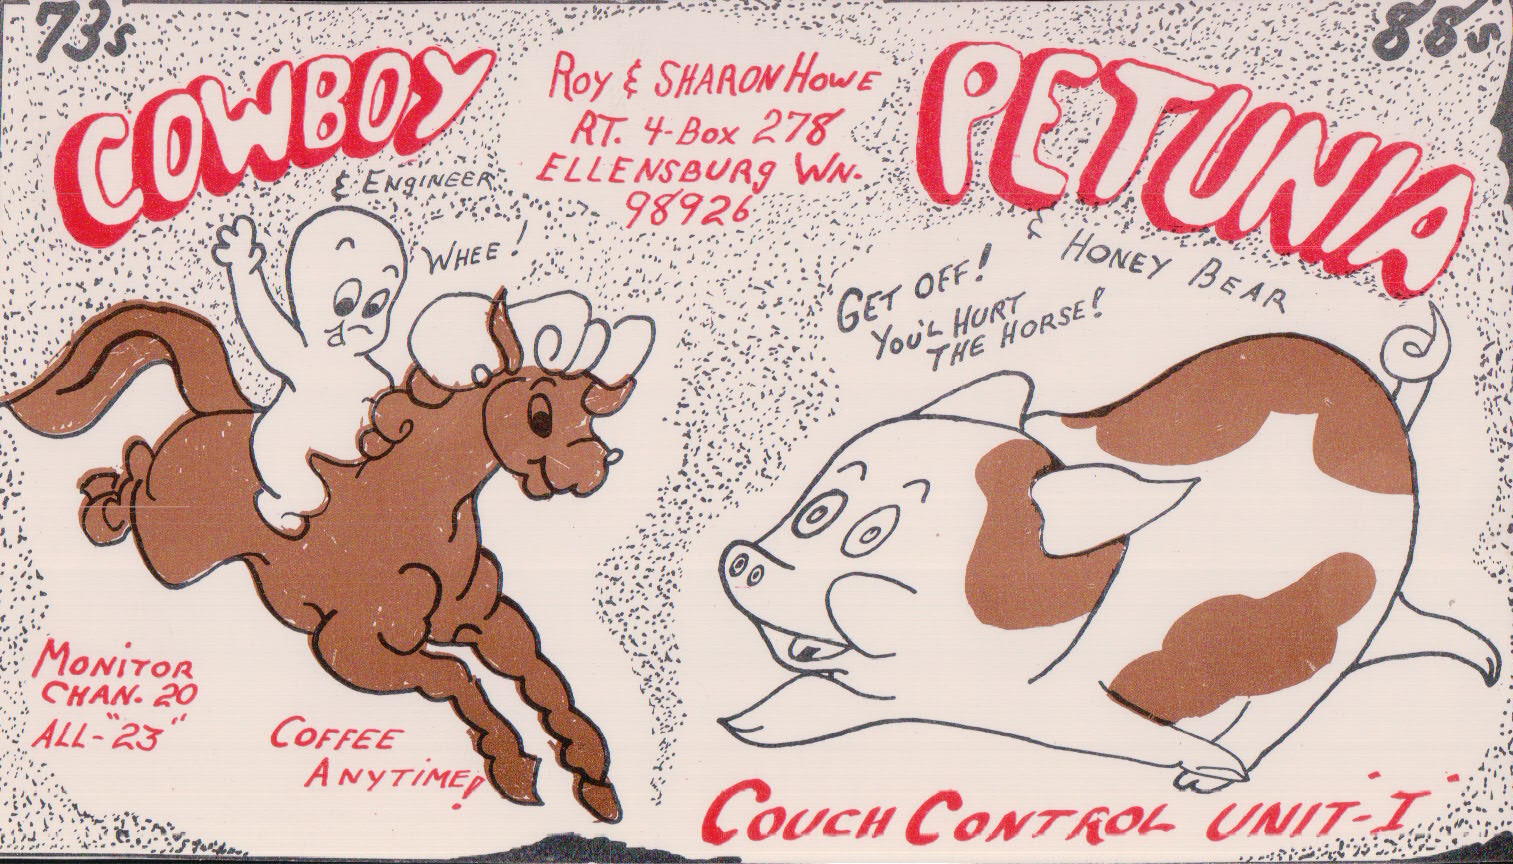 73s
88s
COWBOY
& ENGINEER
ROY & SHARON HOWE
RT. 4-BOX 278
ELLENSBURG WN.
98926
PETUNIA
& HONEY BEAR
WHEE!
GET OFF!
YOU'L HURT
THE HORSE!
MONITOR
CHAN. 20
ALL-"23"
COFFEE
ANYTIME!
COUCH CONTROL UNIT-"I"